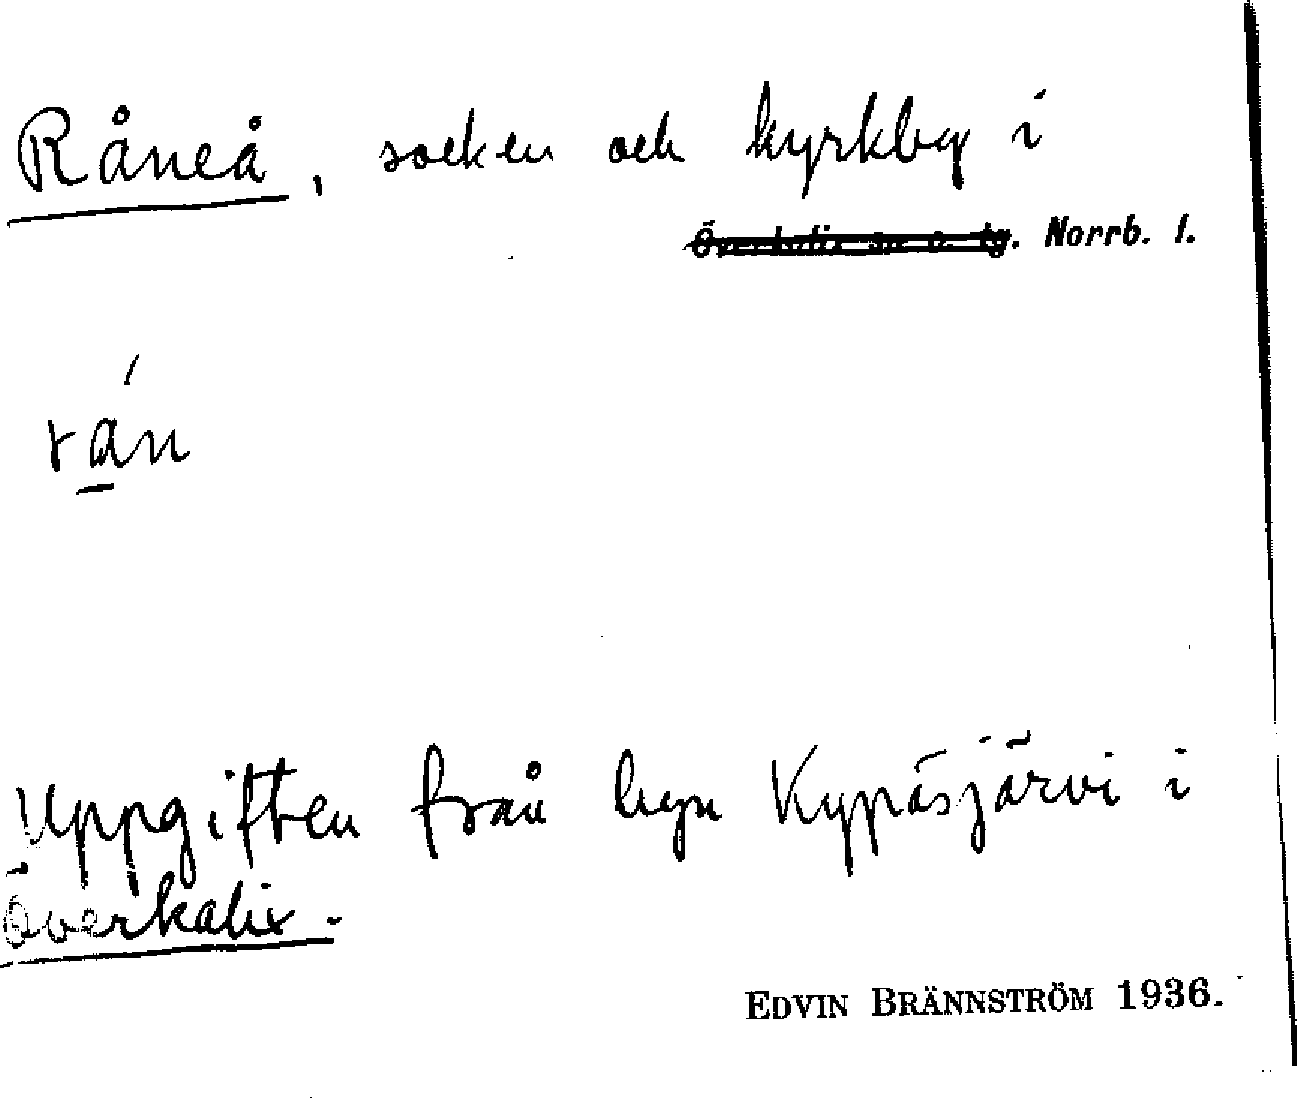 Råneå, socken och kyrkby i
Överkalix sn o. tg. Norrb. l.
rán
Uppgiften från byn Kypäsjärvi i
Överkalix.
EDVIN BRÄNNSTRÖM 1936.